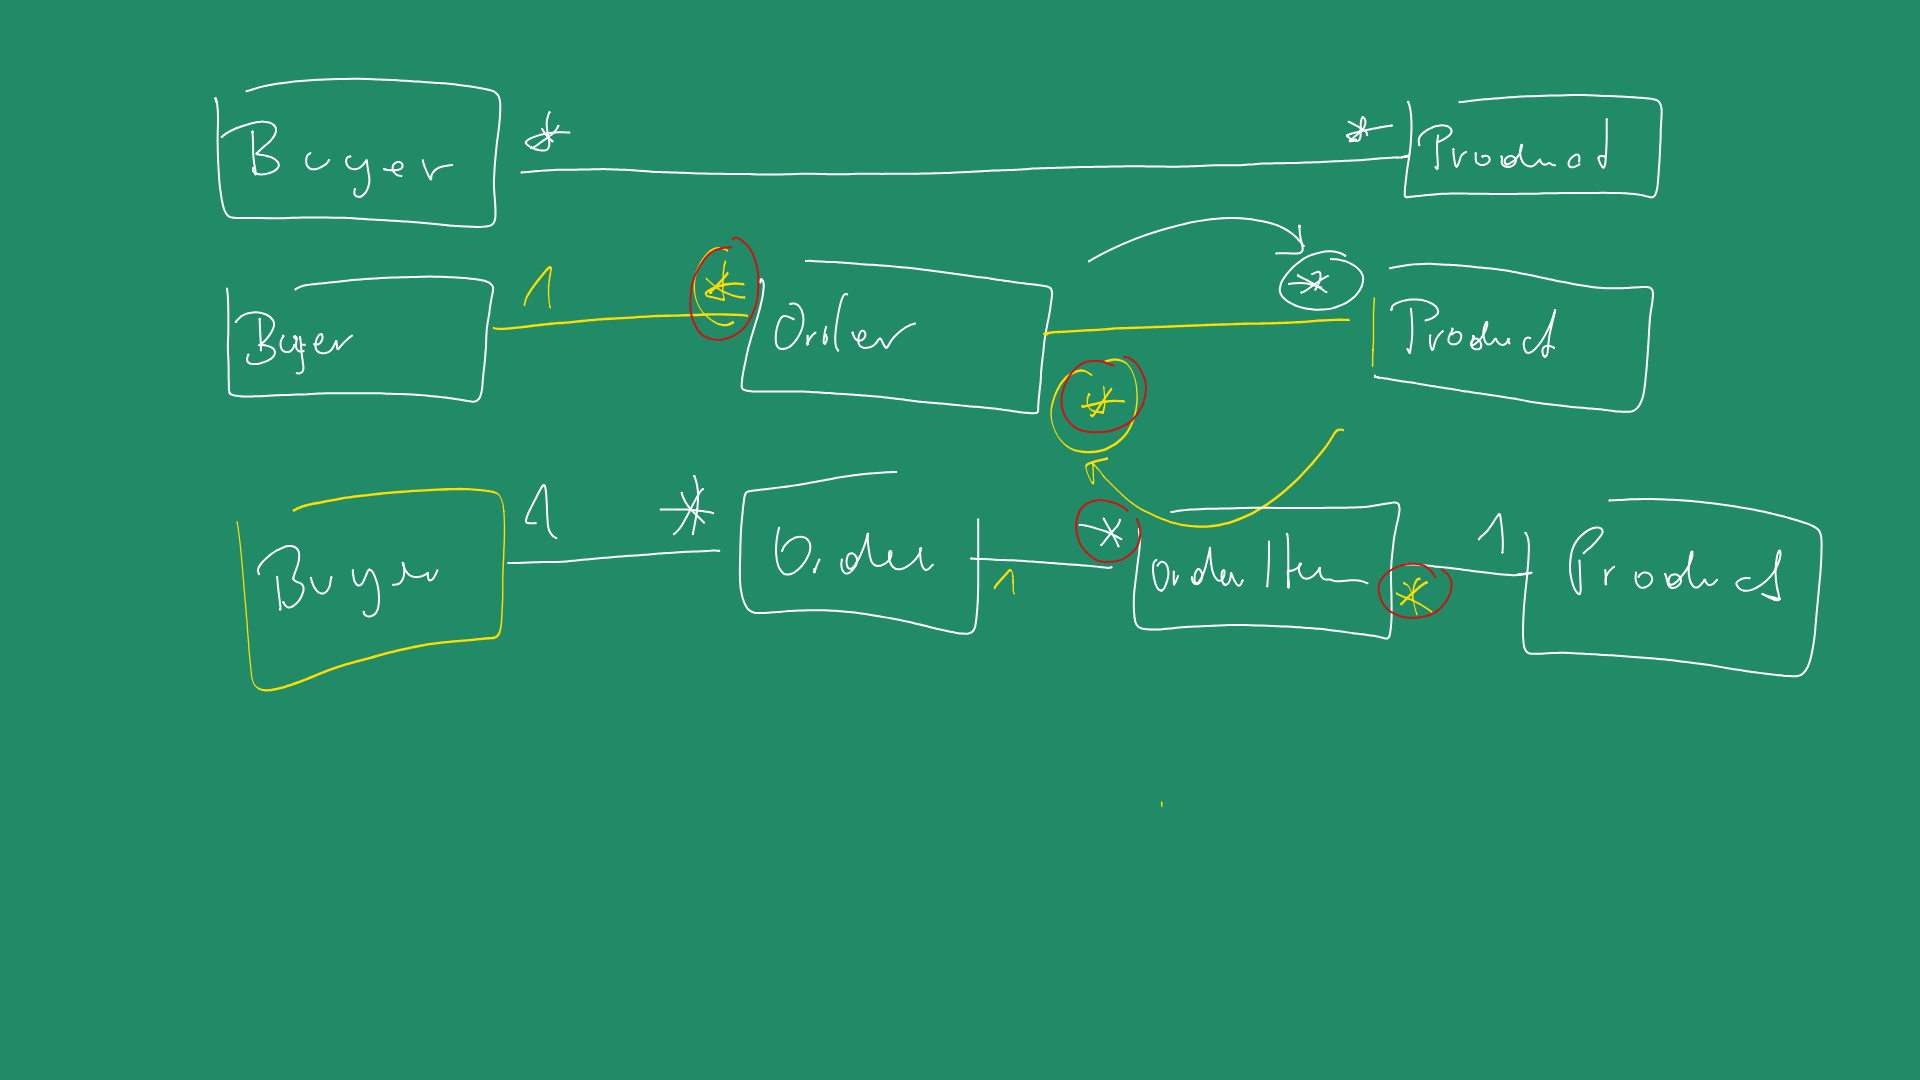 Buyer * * Product
Buyer 1 * Order * * Product
Buyer 1 * Order 1 * Order Item * 1 Product